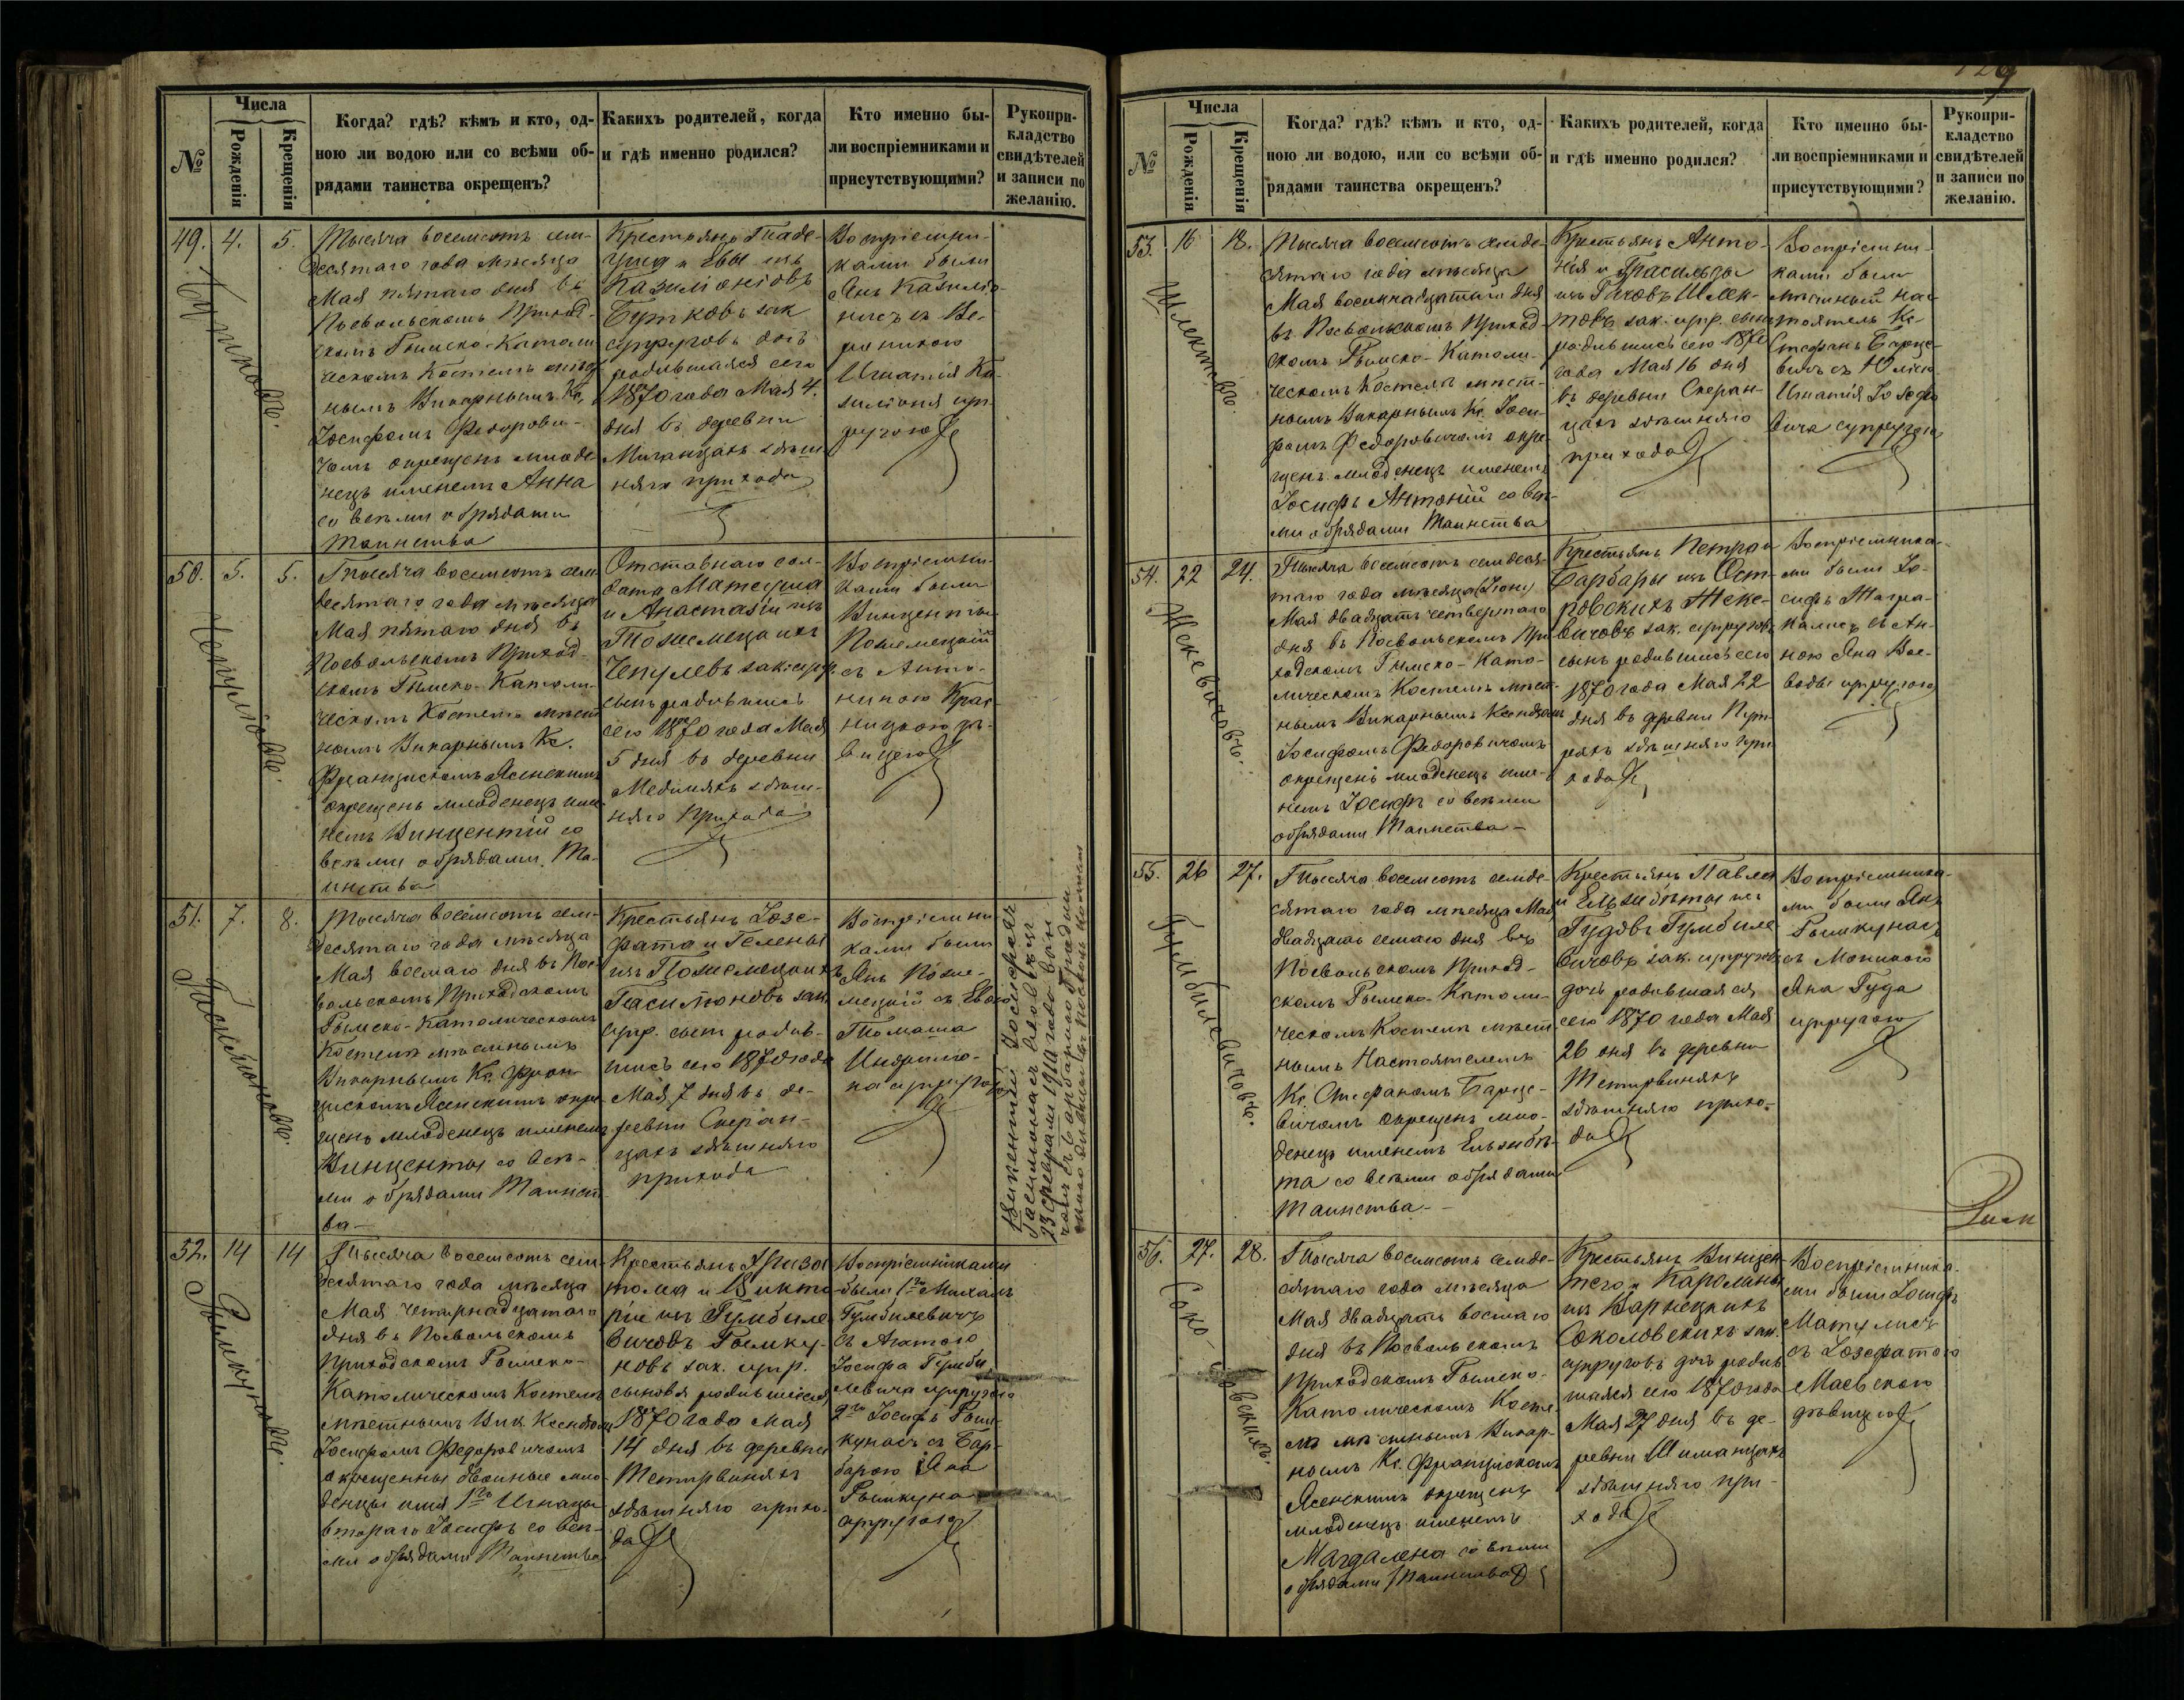 №
Числа
Рожденія
Крещенія
Когда? гдѣ? кѣмъ и кто, од-
ною ли водою или со всѣми об-
рядами таинства окрещенъ?
Какихъ родителей, когда
и гдѣ именно родился?
Кто именно бы-
ли воспріемниками и
присутствующими?
Рукопри-
кладство
свидѣтелей
и записи по
желанію.
49. 4. 5.
Бутковъ.
Тысяча восемсотъ сем-
десятаго года мѣсяца
Мая пятаго дня въ
Посвольскомъ Приход-
скомъ Римско-Католи
ческомъ Костелѣ мѣст
нымъ Викарнымъ Кс.
Іосифомъ Федорови-
чомъ окрещенъ младе
нецъ именемъ Анна
со всѣми обрядами
таинства
Крестьянъ Таде-
уша и Евы изъ
Казиміоніовъ
Бутковъ зак
супруговъ дочь
родившаяся сего
1870 года Мая 4.
дня въ деревни
здѣш
няго прихода
Воспріемни-
ками были
Янъ Казиміо-
нисъ съ Ве-
роникою
Игнатія Ка-
зиміоня суп-
ругою
50. 5. 5.
Чепулевъ.
Тысяча восемсотъ сем
десятаго года мѣсяца
Мая пятаго дня въ
Посвольскомъ Приход-
скомъ Римско-Католи-
ческомъ Костелѣ мѣст
нымъ Викарнымъ Кс.
Францискомъ Ясенскимъ
окрещенъ младенецъ име
немъ Винцентій со
всѣми обрядами Та-
инства
Отставнаго сол-
дата Матеуша
и Анастазіи изъ
Пожемецкихъ
Чепулевъ зак. супр.
сынъ родившись
сего 1870 года Мая
5 дня въ деревни
Медининяхъ здѣш-
няго Прихода
Воспріемни-
ками были
Винценты
Пожемецкій
съ Анто-
ниною Крас-
ницкою дѣ-
вицею
51. 7. 8.
Гасиліоновъ.
Тысяча восемсотъ сем-
десятаго года мѣсяца
Мая восмаго дня въ Пос-
вольскомъ Приходскомъ
Римско-Католическомъ
Костелѣ мѣстнымъ
Викарнымъ Кс. Фран-
цискомъ Ясенскимъ окре-
щенъ младенецъ именемъ
Винценты со всѣ-
ми обрядами Таинст
ва-
Крестьянъ Іозе-
фата и Гелены
изъ Пожемецкихъ
Гасиліоновъ зак.
супр. сынъ родив-
шись сего 1870 года
Мая 7 дня въ де-
ревни Скеран-
цахъ здѣшняго
прихода
Воспріемни
ками были
Янъ Поже-
мецкій съ Евою
Томаша
Индрило-
на супругою
Викентій Іосифов
Гасиліонасъ
23 февраля 1911 года
съ Барбарою
52. 14 14
Римкуновъ.
Тысяча восемсотъ сем
десятаго года мѣсяца
Мая четырнадцатаго
дня въ Посвольскомъ
Приходскомъ Римско-
Католическомъ Костелѣ
мѣстнымъ Вик. Ксендзомъ
Іосифомъ Федоровичомъ
окрещенны двойные мла-
денцы имя 1го Игнацы
втораго Іосифъ со всѣ-
ми обрядами Таинства
Крестьянъ Хризо
стома и Викто
ріи изъ Гумбиле
вичовъ Римку-
новъ зак. супр.
сыновя родившіеся
1870 года Мая
14 дня въ деревни
Тетирвиняхъ
здѣшняго прихо-
да
Воспріемниками
были 1го Михаилъ
Гумбилевичъ
съ Агатою
Іосифа Гумби
левича супругою
2го Іосифъ Рим
кунасъ съ Бар-
барою Яна
Римкуна
супругою
129
№
Числа
Рожденія
Крещенія
Когда? гдѣ? кѣмъ и кто, од-
ною ли водою, или со всѣми об-
рядами таинства окрещенъ?
Какихъ родителей, когда
и гдѣ именно родился?
Кто именно бы-
ли воспріемниками и
присутствующими?
Рукопри-
кладство
свидѣтелей
и записи по
желанію.
53. 16 18.
Шлектовъ.
Тысяча восемсотъ семде-
сятаго года мѣсяца
Мая восимнадцатаго дня
въ Посвольскомъ Приход
скомъ Римско-Католи-
ческомъ Костелѣ мѣст-
нымъ Викарнымъ Кс. Іоси-
фомъ Федоровичомъ окре-
щенъ младенецъ именемъ
Іосифъ Антоній со всѣ-
ми обрядами Таинства
Крестьянъ Анто-
нія и Врасильды
изъ Шлек-
товъ зак. супр. сынъ
родившись сего 1870
года Мая 16 дня
въ деревни Скеран-
цахъ здѣшняго
прихода
Воспріемни-
ками были
мѣстный нас-
тоятель Кс.
Стефанъ Барце-
вичъ съ Юліею
Игнатія Іозефо
вича супругою
54. 22 24.
Жекевичовъ.
Тысяча восемсотъ семдеся-
таго года мѣсяца
Мая двадцать четвертаго
дня въ Посвольскомъ При
ходскомъ Римско-Като-
лическомъ Костелѣ мѣст-
нымъ Викарнымъ Ксендзомъ
Іосифомъ Федоровичомъ
окрещенъ младенецъ име-
немъ Іосифъ со всѣми
обрядами Таинства-
Крестьянъ Петра и
Барбары изъ Ост-
ровскихъ Жеке-
вичовъ зак. супруговъ
сынъ родившись сего
1870 года Мая 22
дня въ деревни Пут-
ряхъ здѣшняго при
хода
Воспріемника-
ми были Іо-
сифъ
съ Ан-
ною Яна Вое-
воды супругою
55. 26 27.
Гумбилевичовъ.
Тысяча восемсотъ семде-
сятаго года мѣсяца Мая
двадцать семаго дня въ
Посвольскомъ Приход-
скомъ Римско-Католи-
ческомъ Костелѣ мѣст
нымъ Настоятелемъ
Кс. Стефаномъ Барце-
вичомъ окрещенъ мла-
денецъ именемъ Ельзибѣ-
та со всѣми обрядами
Таинства-
Крестьянъ Павла
и Ельзибѣты изъ
Гудовъ Гумбиле
вичовъ зак. супруговъ
дочь родившаяся
сего 1870 года Мая
26 дня въ деревни
Тетирвиняхъ
здѣшняго прихо-
да
Воспріемника-
ми были Янъ
Римкунасъ
съ Моникою
Яна Гуда
супругою
56. 27. 28.
Соко-ловскихъ.
Тысяча восемсотъ семде-
сятаго года мѣсяца
Мая двадцать восмаго
дня въ Посвольскомъ
Приходскомъ Римско-
Католическомъ Косте-
лѣ мѣстнымъ Викар-
нымъ Кс. Францискомъ
Ясенскимъ окрещенъ
младенецъ именемъ
Магдалена со всѣми
обрядами Таинства
Крестьянъ Винцен-
тего и Каролины
изъ Варнецкихъ
Соколовскихъ зак.
супруговъ дочь родив
шаяся сего 1870 года
Мая 27 дня въ де-
ревни Шиманцахъ
здѣшняго при-
хода
Воспріемника-
ми были Іосифъ
Матулисъ
съ Іозефатою
Маевскою
дѣвицею